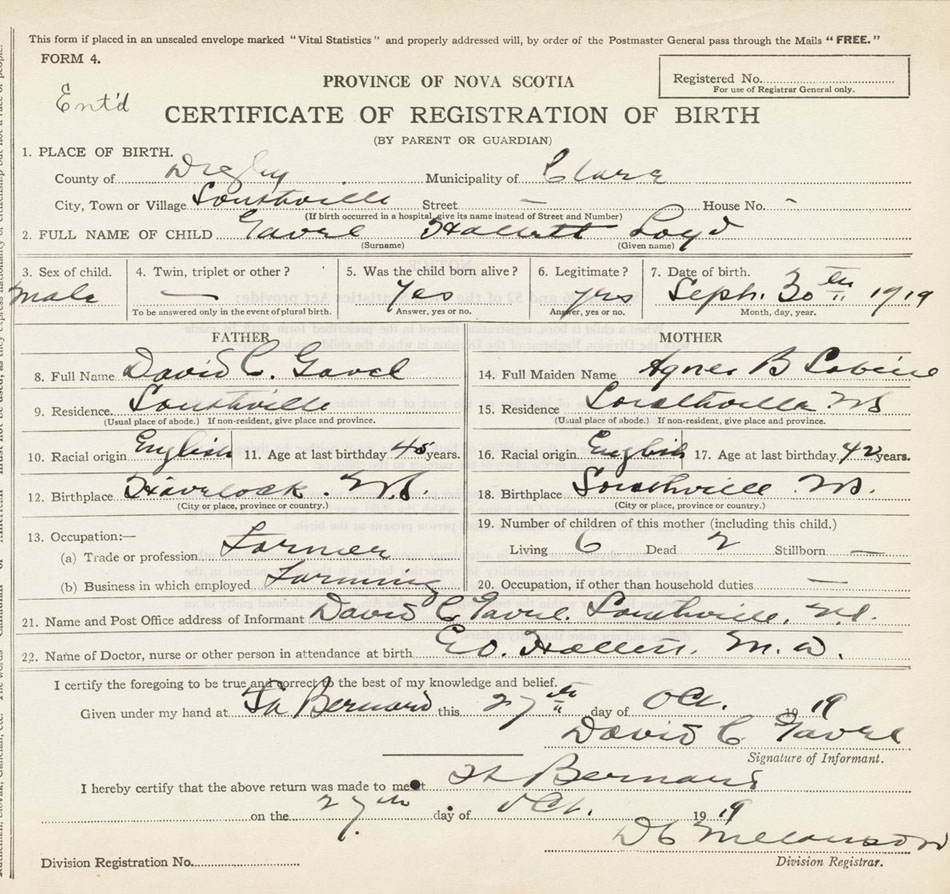 This form if placed in an unsealed envelope marked "Vital Statistics" and properly addressed will, by order of the Postmaster General pass through the Mails "FREE."
FORM 4.
Registered No.
For use of Registrar General only.
Ent'd
PROVINCE OF NOVA SCOTIA
CERTIFICATE OF REGISTRATION OF BIRTH
(BY PARENT OR GUARDIAN)
1. PLACE OF BIRTH.
County of Digby Municipality of Clare
City, Town or Village Southville Street — House No. -
(If birth occurred in a hospital, give its name instead of Street and Number)
2. FULL NAME OF CHILD Gavel Hallett Loyd
(Surname) (Given name)
3. Sex of child. 4. Twin, triplet or other? 5. Was the child born alive? 6. Legitimate? 7. Date of birth.
Male — Yes Yes Seph. 30th 1919
To be answered only in the event of plural birth. Answer, yes or no. Answer, yes or no. Month, day, year.
FATHER
8. Full Name David C. Gavel
9. Residence. Southville
(Usual place of abode.) If non-resident, give place and province.
10. Racial origin English 11. Age at last birthday 45 years.
12. Birthplace Havelock. N.S.
(City or place, province or country.)
13. Occupation:—
(a) Trade or profession Farmer
(b) Business in which employed Farming
MOTHER
14. Full Maiden Name Agnes B
15. Residence Southville NS
(Usual place of abode.) If non-resident, give place and province.
16. Racial origin English 17. Age at last birthday 42 years.
18. Birthplace Southville NS.
(City or place, province or country.)
19. Number of children of this mother (including this child.)
Living 6 Dead 2 Stillborn —
20. Occupation, if other than household duties —
21. Name and Post Office address of Informant David C Gavel. Southville, N.S.
22. Name of Doctor, nurse or other person in attendance at birth E.O. Hallett. M.D.
I certify the foregoing to be true and correct to the best of my knowledge and belief.
Given under my hand at St Bernard this 27th day of Oct. 1919
David C Gavel
Signature of Informant.
I hereby certify that the above return was made to me at St Bernard
on the 27th day of Oct. 1919
Division Registration No. Division Registrar.